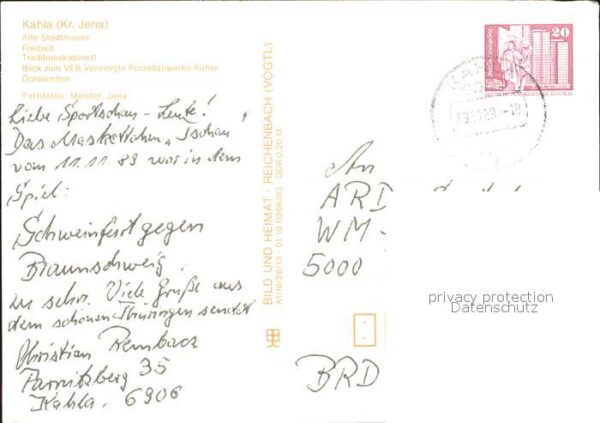 Kahla (Kr. Jena)
Alte Stadtmauer
Freibad
Traditionskabinett
Blick zum VEB Vereinigte Porzellanwerke Kahla
Dohlenstein
Farbfotos: Meister, Jena
Liebe Sportschau-Leute!
Das Maskottchen "Tschau"
vom 11.11 89 war in dem
Spiel:
Schweinfurt gegen
Braunschweig
zu sehn. Viele Grüße aus
dem schönen Thüringen sendet
Christian
35
Kahla. 6906
BILD UND HEIMAT · REICHENBACH (VOGTL)
A1/III/26/13 01 10 0206/03 DDR 0,20 M
20
KAHLA
13.11.89
An
ARD
WM-
5000
BRD
privacy protection
Datenschutz